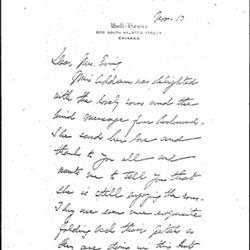 Nov. 13
Hull-House
800 South Halsted Street
Chicago
Dear Mrs. Ewing
Miss Addams was delighted
with the lovely roses and the
kind message from
She sends her love and
thanks to you all and
wants me to tell you that
she is still enjoying the roses.
They are some more exquisite
folding back their petals as
they are doing in this last